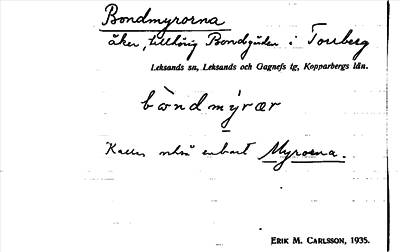 Bondmyrorna
åker, tillhörig Bondgården i Torrberg
Leksands sn, Leksands och Gagnefs tg, Kopparbergs län.
bòndmýrær
Kallas också enbart Myrorna.
ERIK M. CARLSSON, 1935.